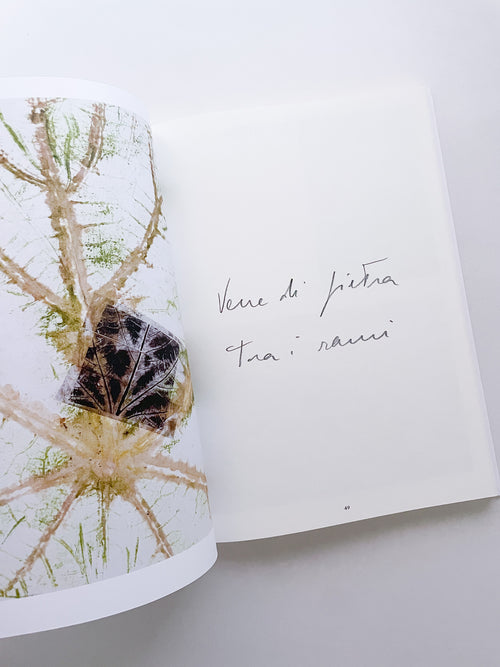 Vene di pietra
tra i rami
49